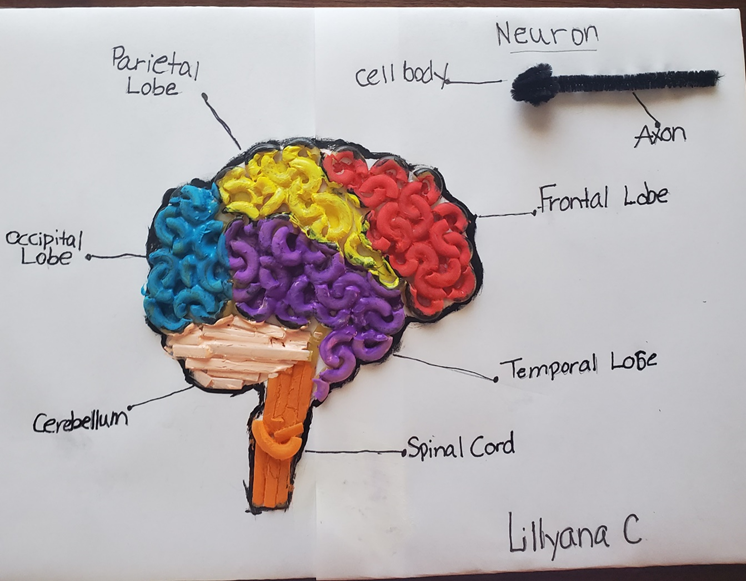 Neuron
Parietal
Lobe
cell body
Axon
Frontal Lobe
occipital
Lobe
Temporal Lobe
Cerebellum
Spinal Cord
Lillyana C